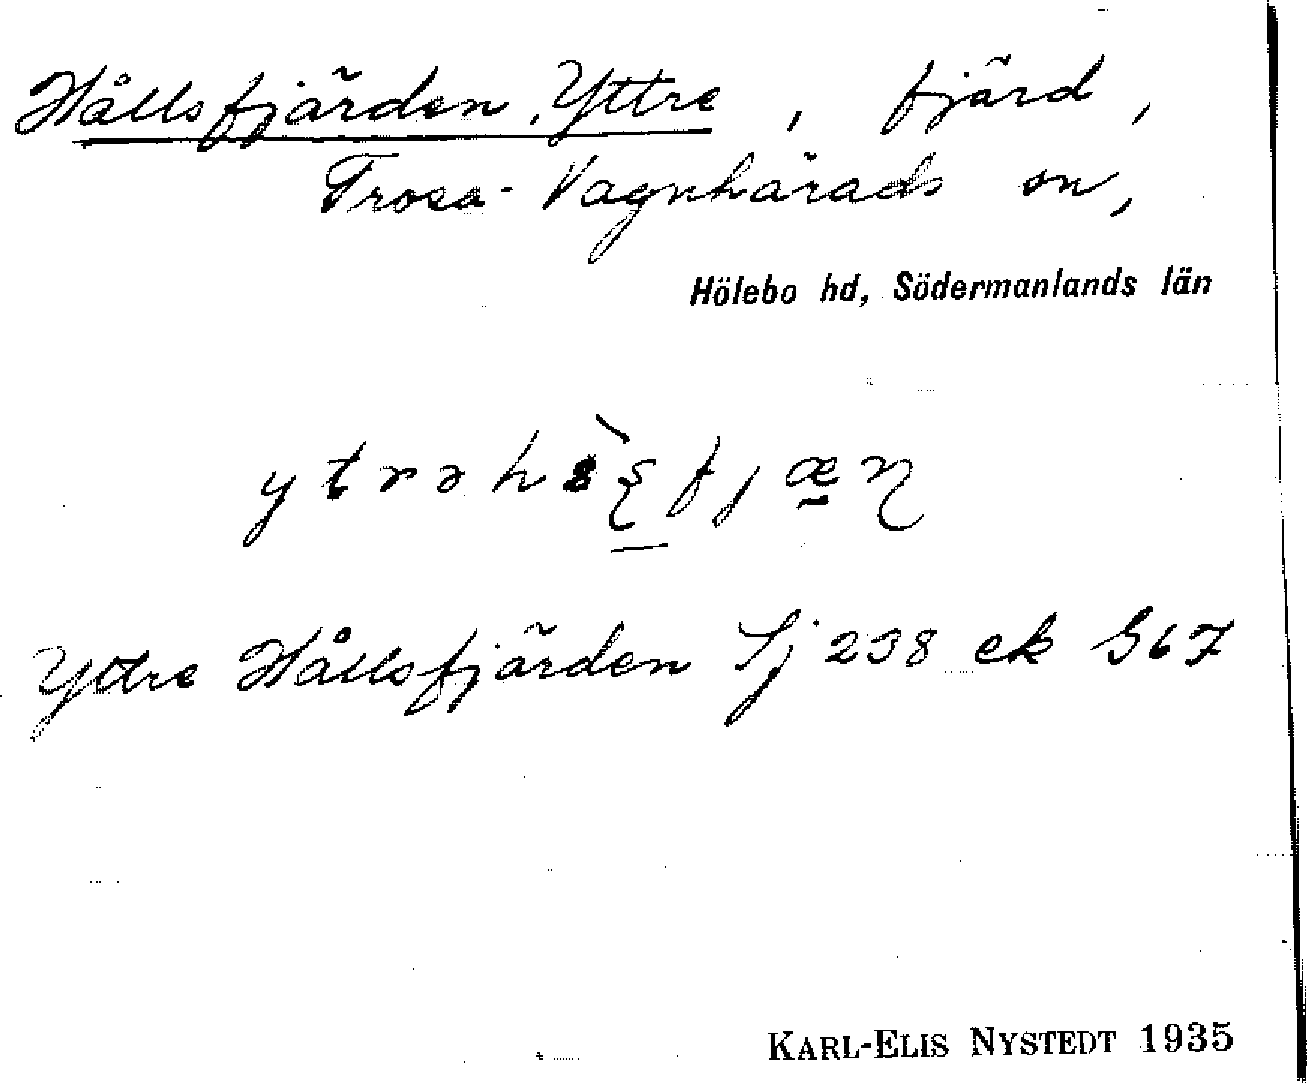 Hållsfjärden, Yttre, fjärd,
Trosa-Vagnhärads sn,
Hölebo hd, Södermanlands län
Yttre Hållsfjärden Sj 238 ek S67
KARL-ELIS NYSTEDT 1935